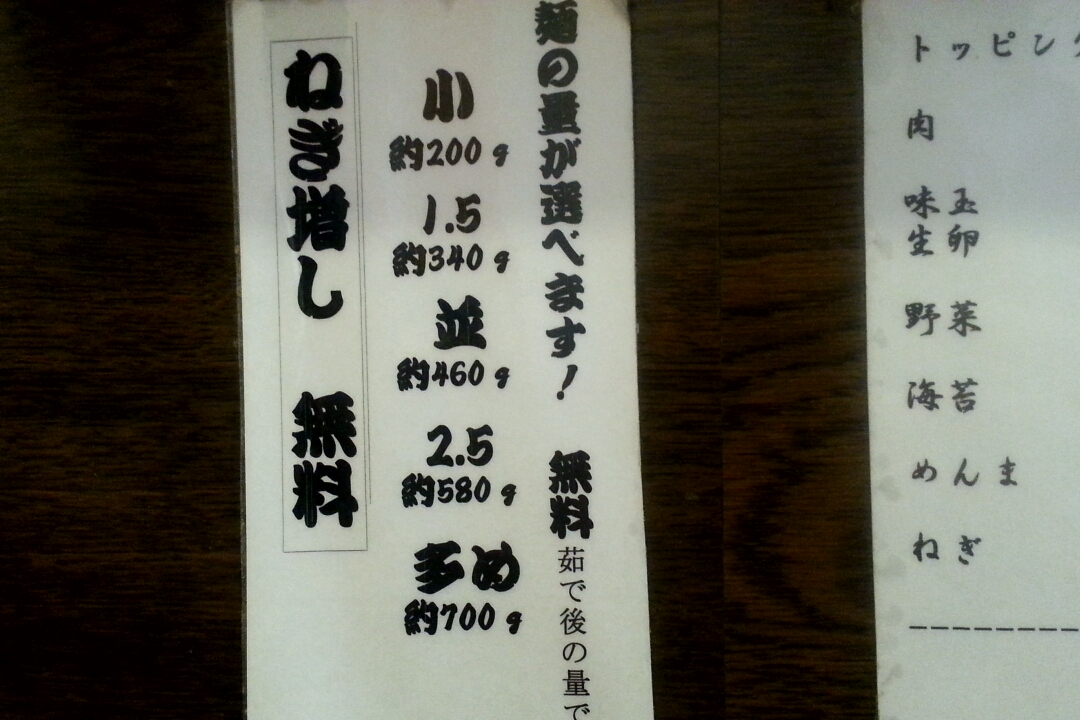 麺の量が選べます！ 無料 茹で後の量で
小
約200g
1.5
約340g
並
約460g
2.5
約580g
多め
約700g
ねぎ増し 無料
トッピング
肉
味玉
生卵
野菜
海苔
めんま
ねぎ